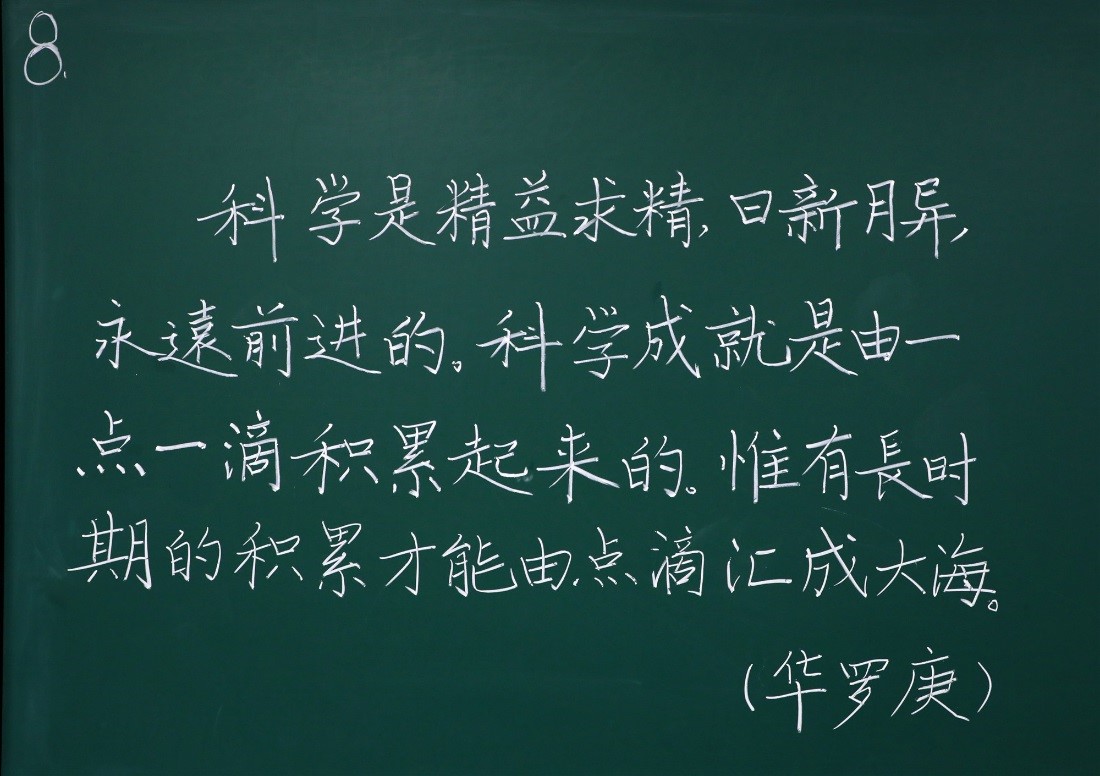 8.
科学是精益求精,日新月异,
永遠前进的。科学成就是由一
点一滴积累起来的。惟有長时
期的积累才能由点滴汇成大海。
(华罗庚)